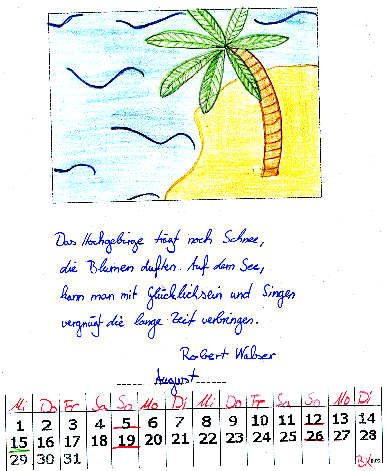 Das Hochgebirge trägt noch Schnee,
die Blumen duften. Auf dem See,
kann man mit Glücklichsein und Singen
vergnügt die lange Zeit verbringen.
Robert Walser
August
Mi Do Fr Sa So Mo Di Mi Do Fr Sa So Mo Di
1 2 3 4 5 6 7 8 9 10 11 12 13 14
15 16 17 18 19 20 21 22 23 24 25 26 27 28
29 30 31